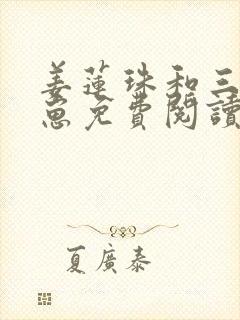 姜蓮珠和三
崽免費閱讀
夏廣泰